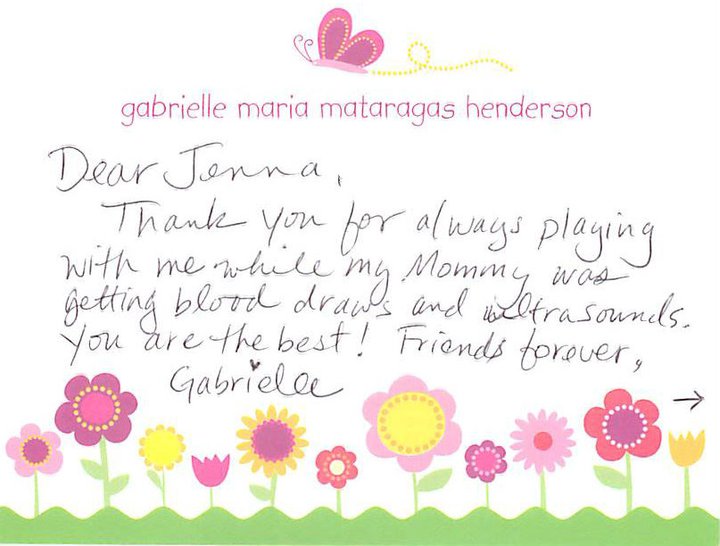 gabrielle maria mataragas henderson
Dear Jenna,
Thank you for always playing
with me while my Mommy was
getting blood draws and ultrasounds.
You are the best! Friends forever,
Gabrielle
→